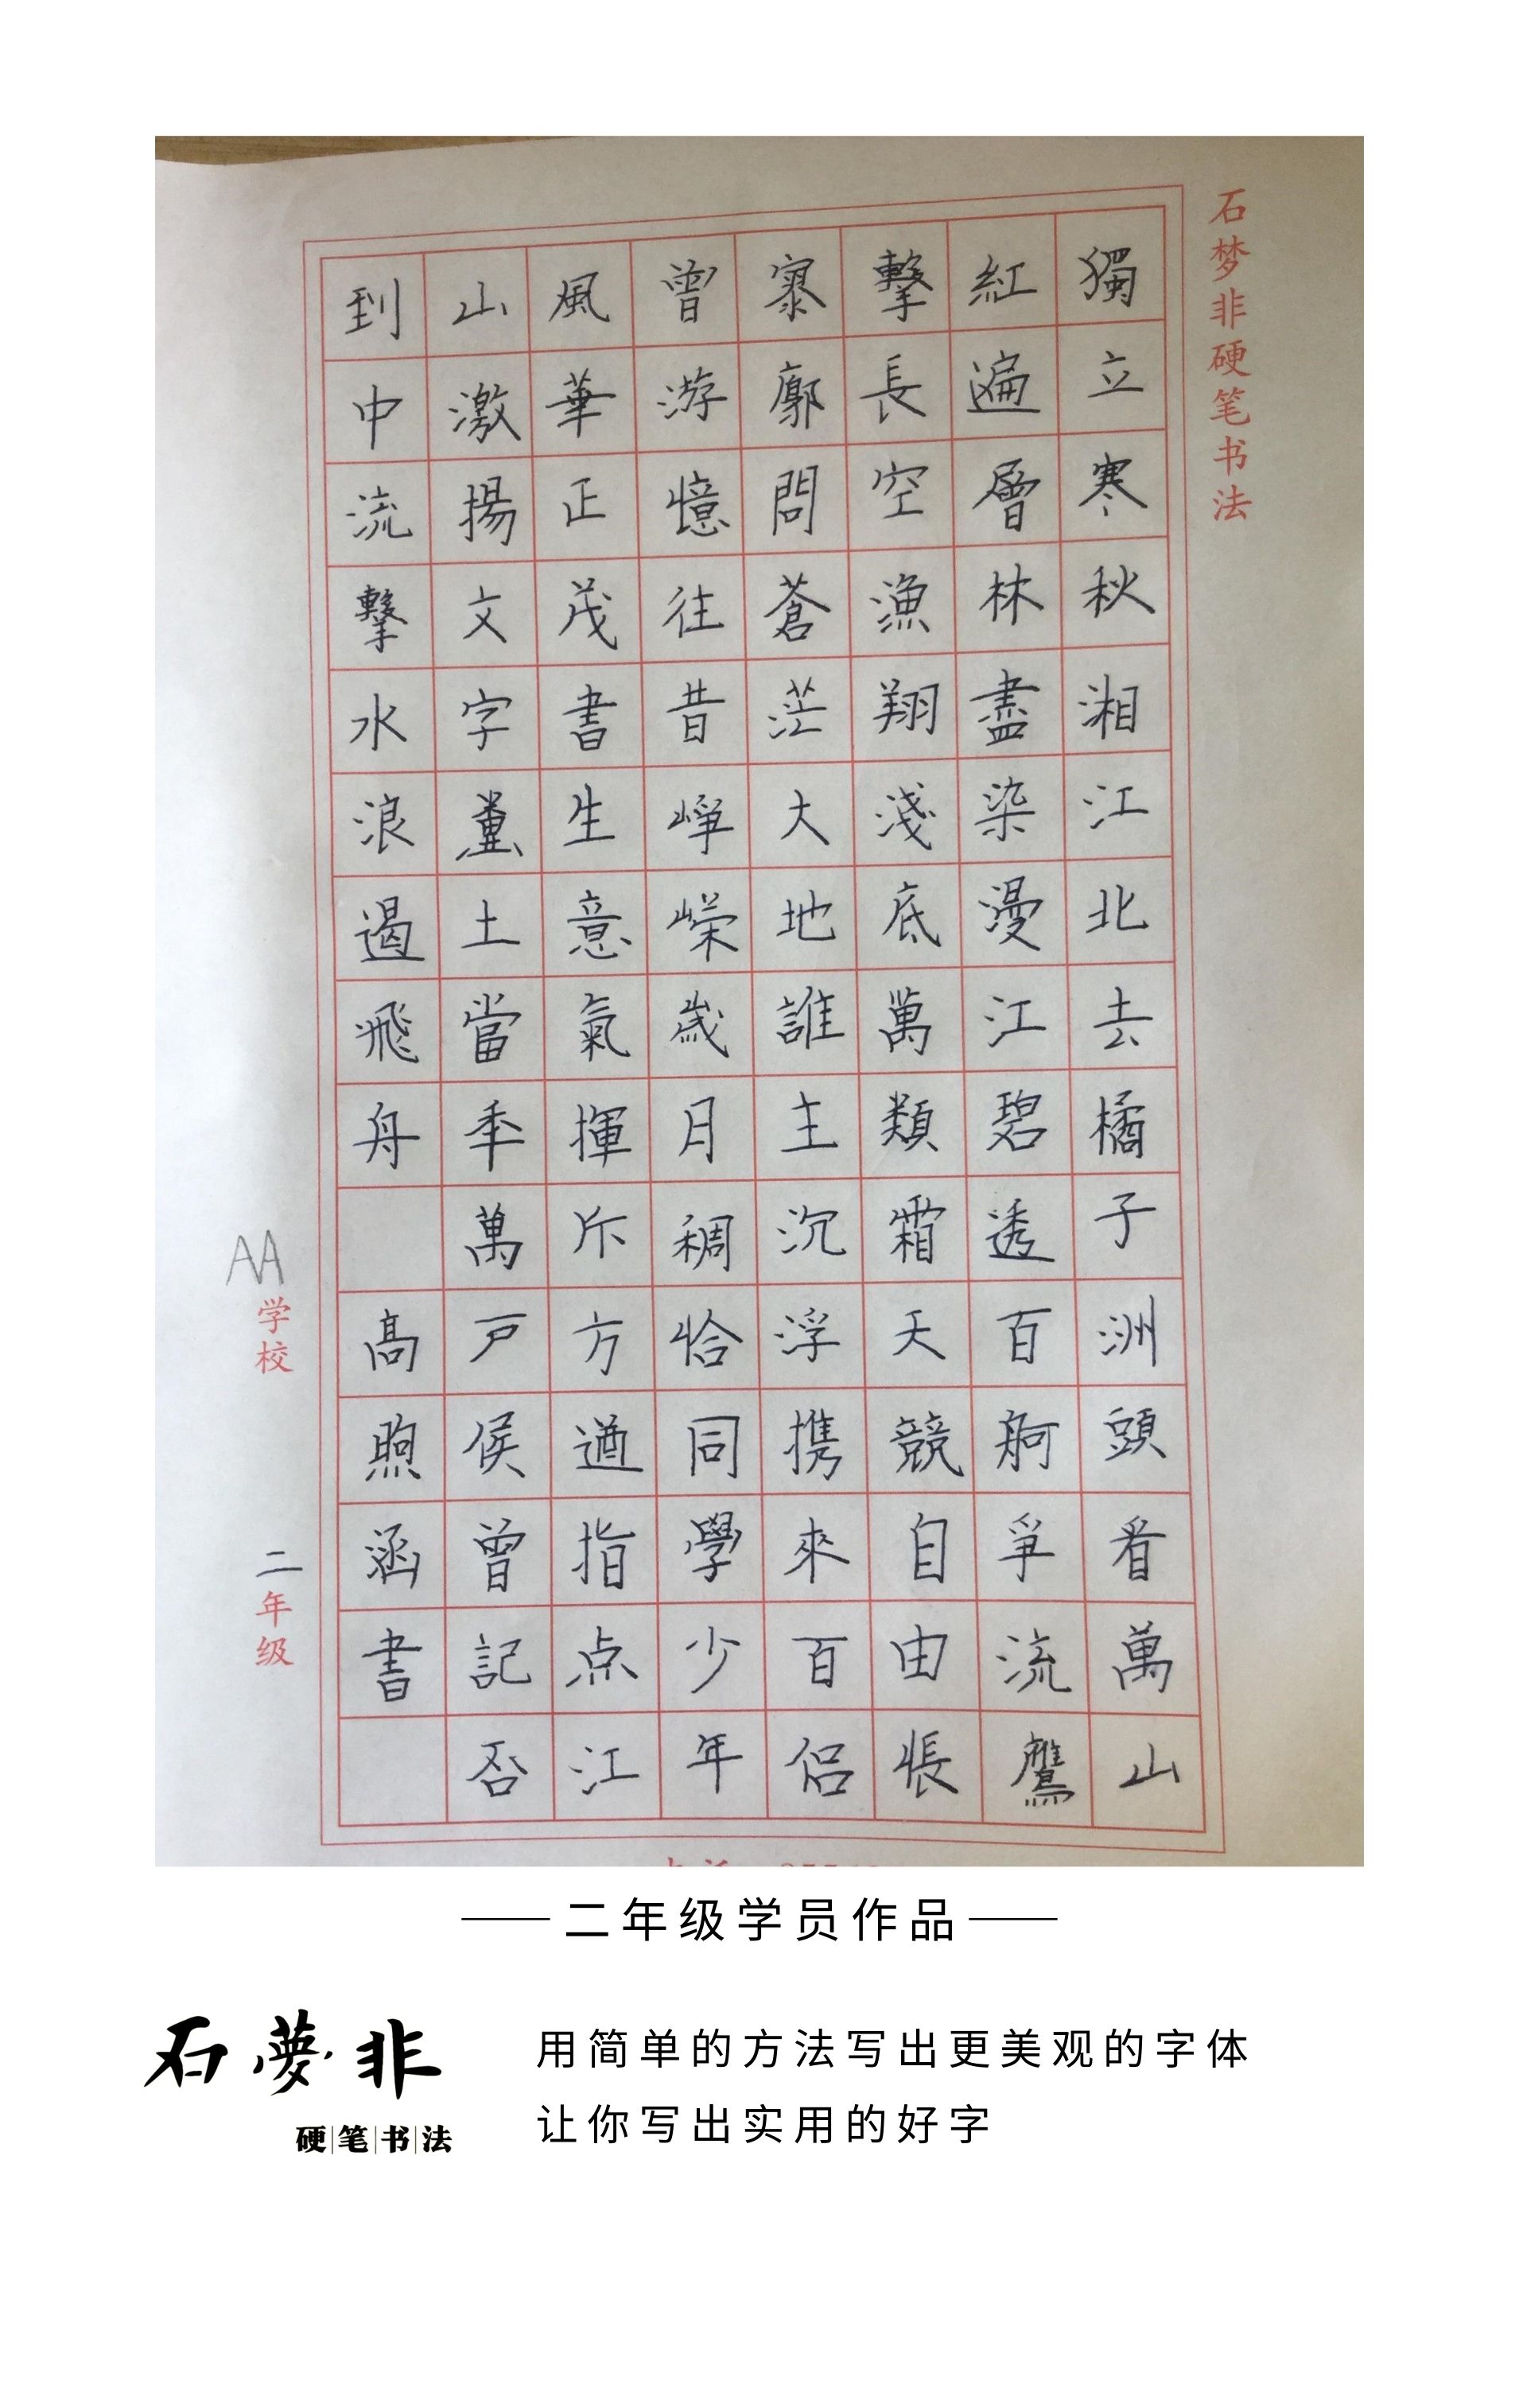 石梦非硬笔书法
獨立寒秋湘江北去橘子洲頭看萬山
紅遍層林盡染漫江碧透百舸爭流鷹
擊長空漁翔淺底萬類霜天競自由悵
寥廓問蒼茫大地誰主沉浮携來百侶
曾游憶往昔崢嶸歲月稠恰同學少年
風華正茂書生意氣揮斥方遒指点江
山激揚文字糞土當秊萬戸侯曾記否
到中流擊水浪遏飛舟 高煦涵書
AA学校 二年级
二年级学员作品
石夢非
硬笔书法
用简单的方法写出更美观的字体
让你写出实用的好字